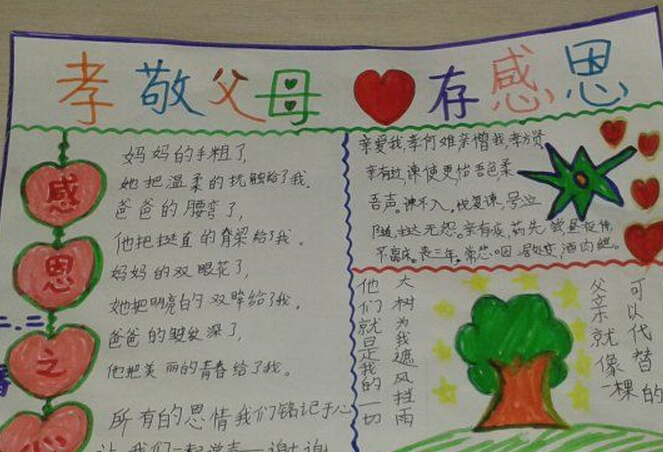 孝敬父母 存感恩
感恩之心
妈妈的手粗了,
她把温柔的抚触给了我。
爸爸的腰弯了,
他把挺直的脊梁给了我。
妈妈的双眼花了,
她把明亮的双眸给了我。
爸爸的皱纹深了,
他把美丽的青春给了我。
所有的恩情我们铭记于心
让我们一起说声——谢谢
亲爱我,孝何难,亲憎我,孝方贤
亲有过,谏使更,怡吾色,柔
吾声。谏不入,悦复谏,号泣
随,挞无怨。亲有疾,药先尝,昼夜侍,
不离床。丧三年,常悲咽,居处变,酒肉绝。
可以代替
父亲就像一棵的
大树为我遮风挡雨
他们就是我的一切
二.二